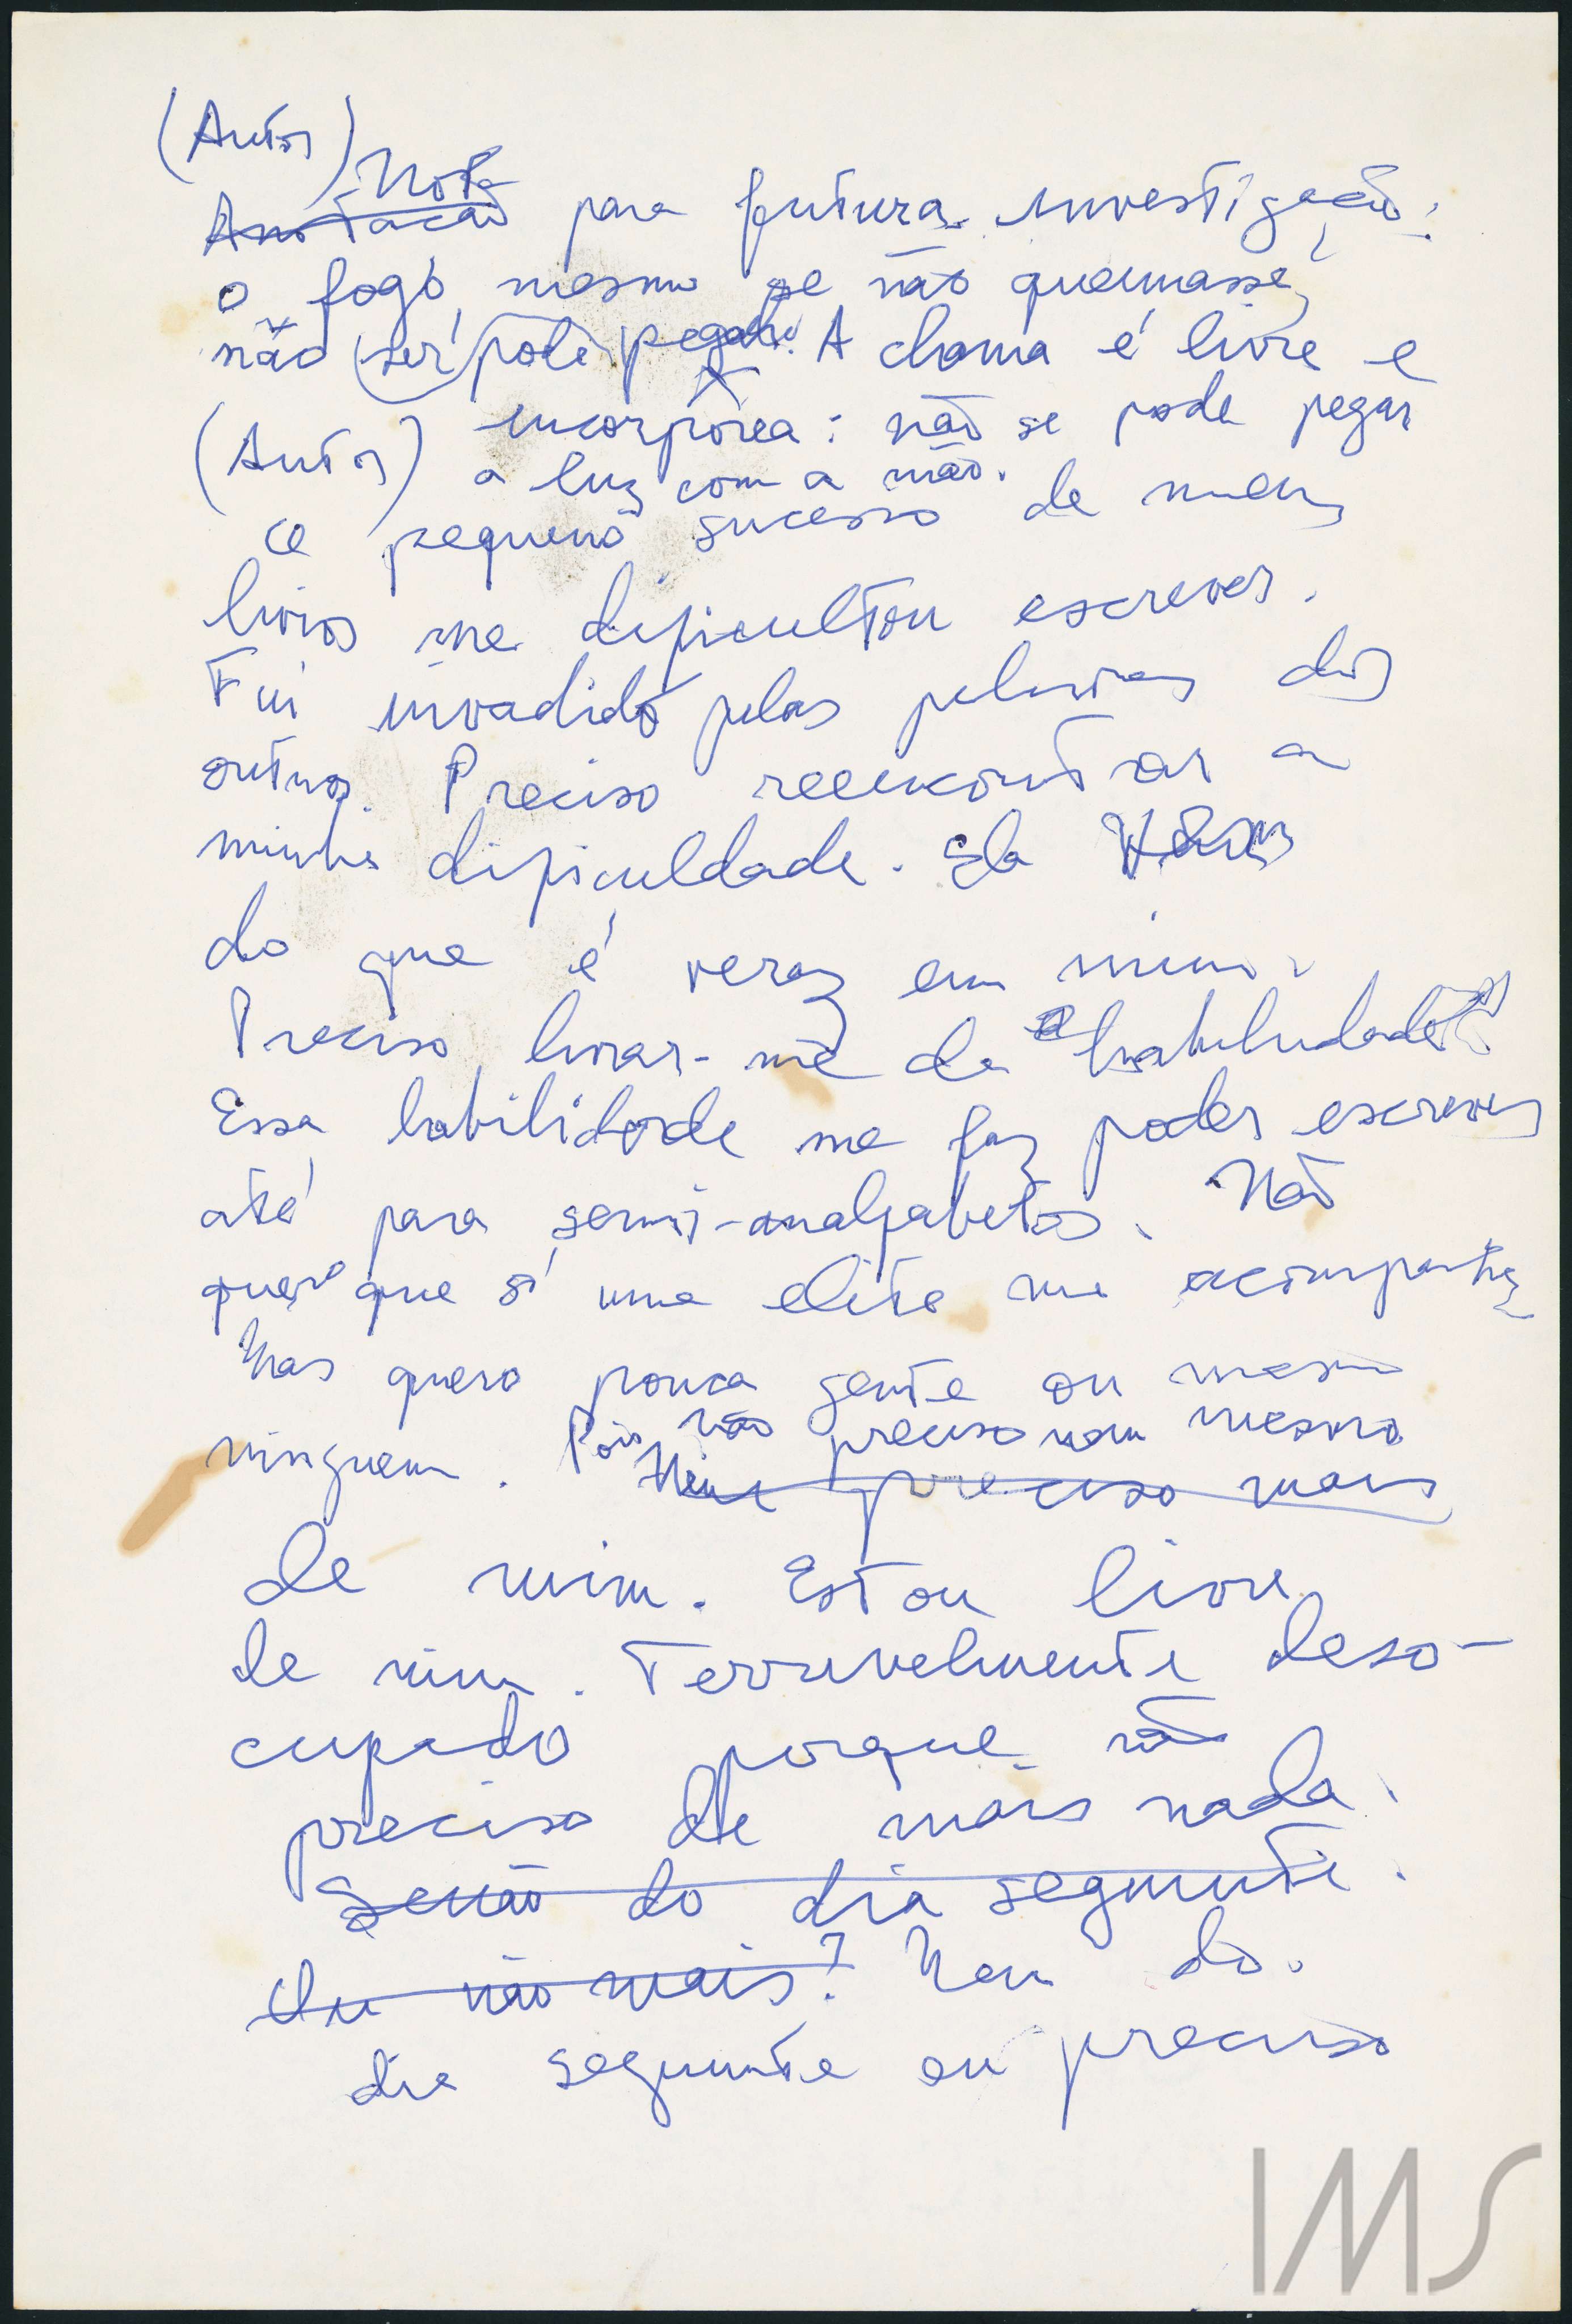 (Autor)
Nota
Anotação para futura investigação:
o fogo, mesmo se não queimasse,
não (ser) pode pegar. A chama é livre e
incorpórea: não se pode pegar
(Autor) a luz com a mão.
O pequeno sucesso de meus
livros me dificultou escrever.
Fui invadido pelas palavras dos
outros. Preciso reencontrar a
minha dificuldade. Ela
do que é veraz em mim.
Preciso livrar-me da habilidade.
Essa habilidade me faz poder escrever
até para semi-analfabetos. Não
quero que só uma elite me acompanhe
Mas quero pouca gente ou mesmo
ninguem. Pois não preciso nem mesmo
Nem preciso mais
de mim. Estou livre
de mim. Terrivelmente deso-
cupado porque não
preciso de mais nada.
Senão do dia seguinte.
Ou não mais? Nem do.
dia seguinte eu preciso
IMS